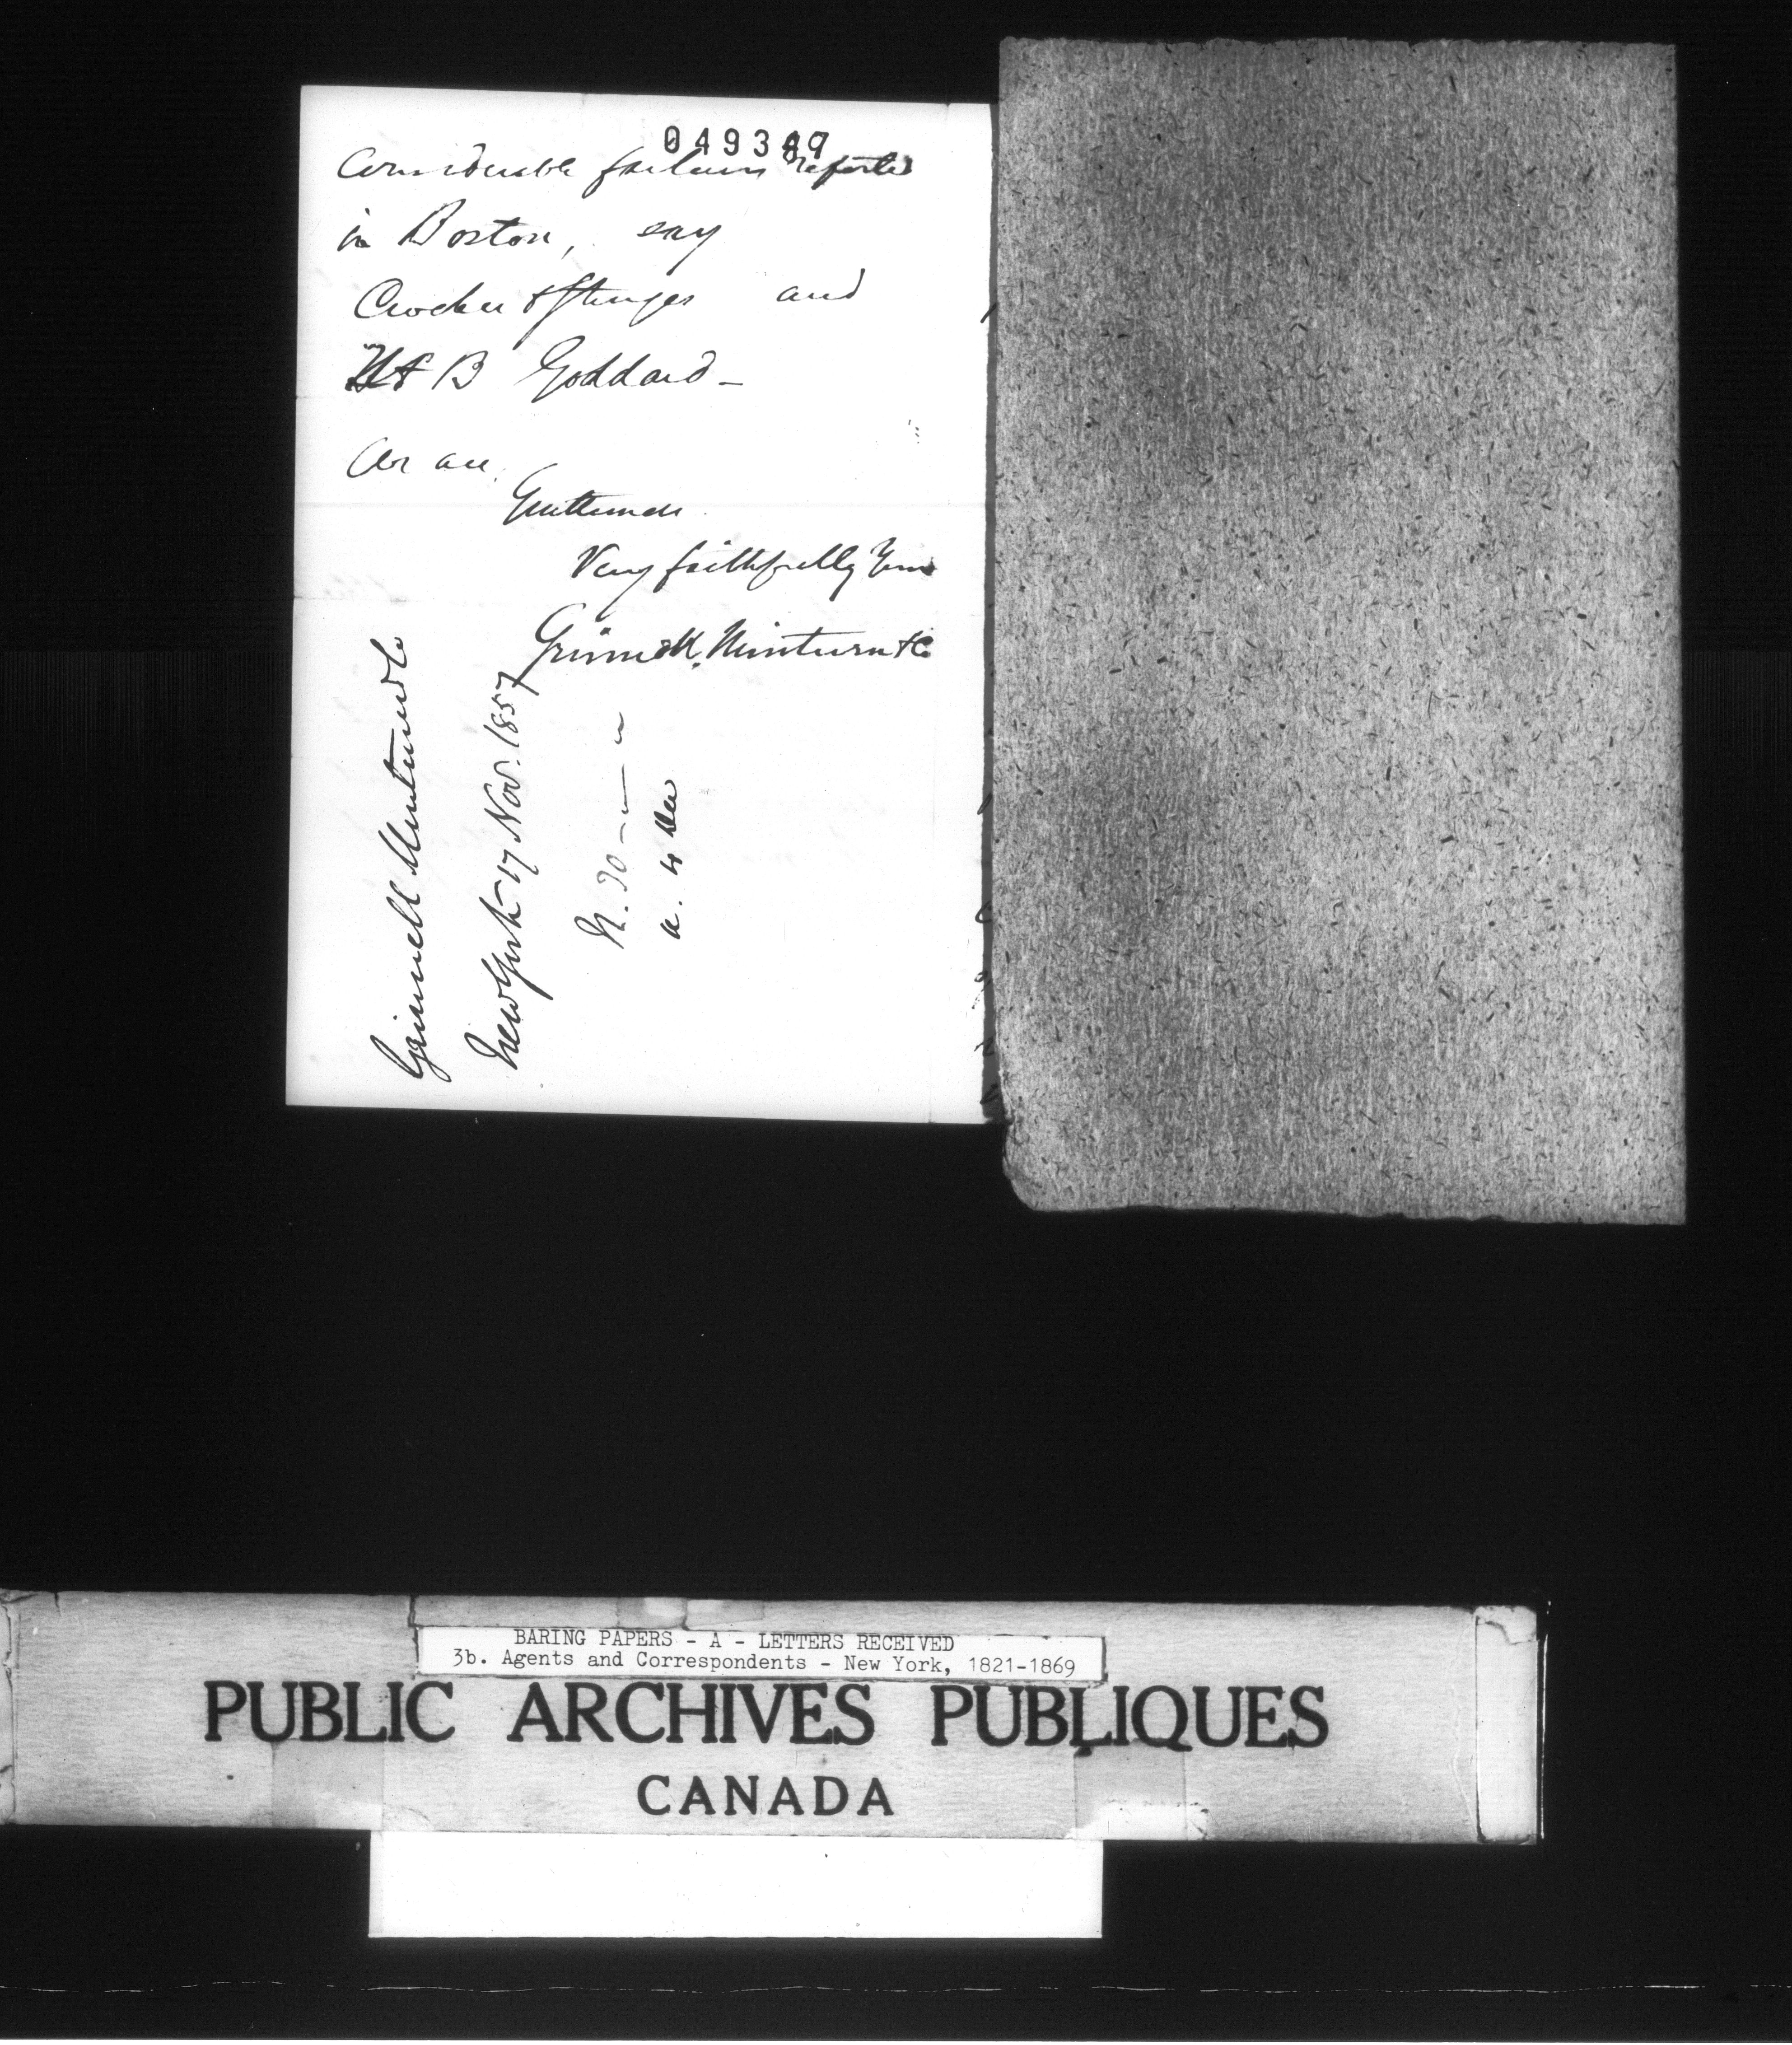 049347
Considerable failures reported
in Boston, say
Crocker & Sturges and
B Goddard -
We are,
Gentlemen
Very faithfully Yours
Grinnell, Minturn & Co
Grinnell Minturn & Co
New York 17 Nov. 1857
R. 30
a. 4 Dec
BARING PAPERS - A - LETTERS RECEIVED
3b. Agents and Correspondents - New York, 1821-1869
PUBLIC ARCHIVES PUBLIQUES
CANADA